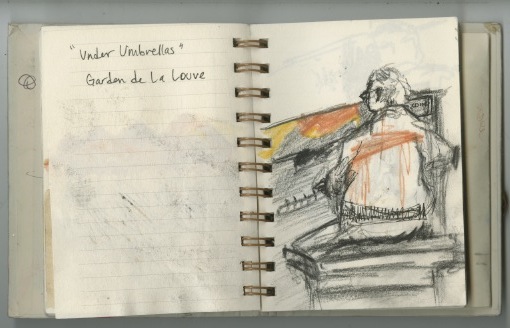 "Under Umbrellas"
Garden de La Louve